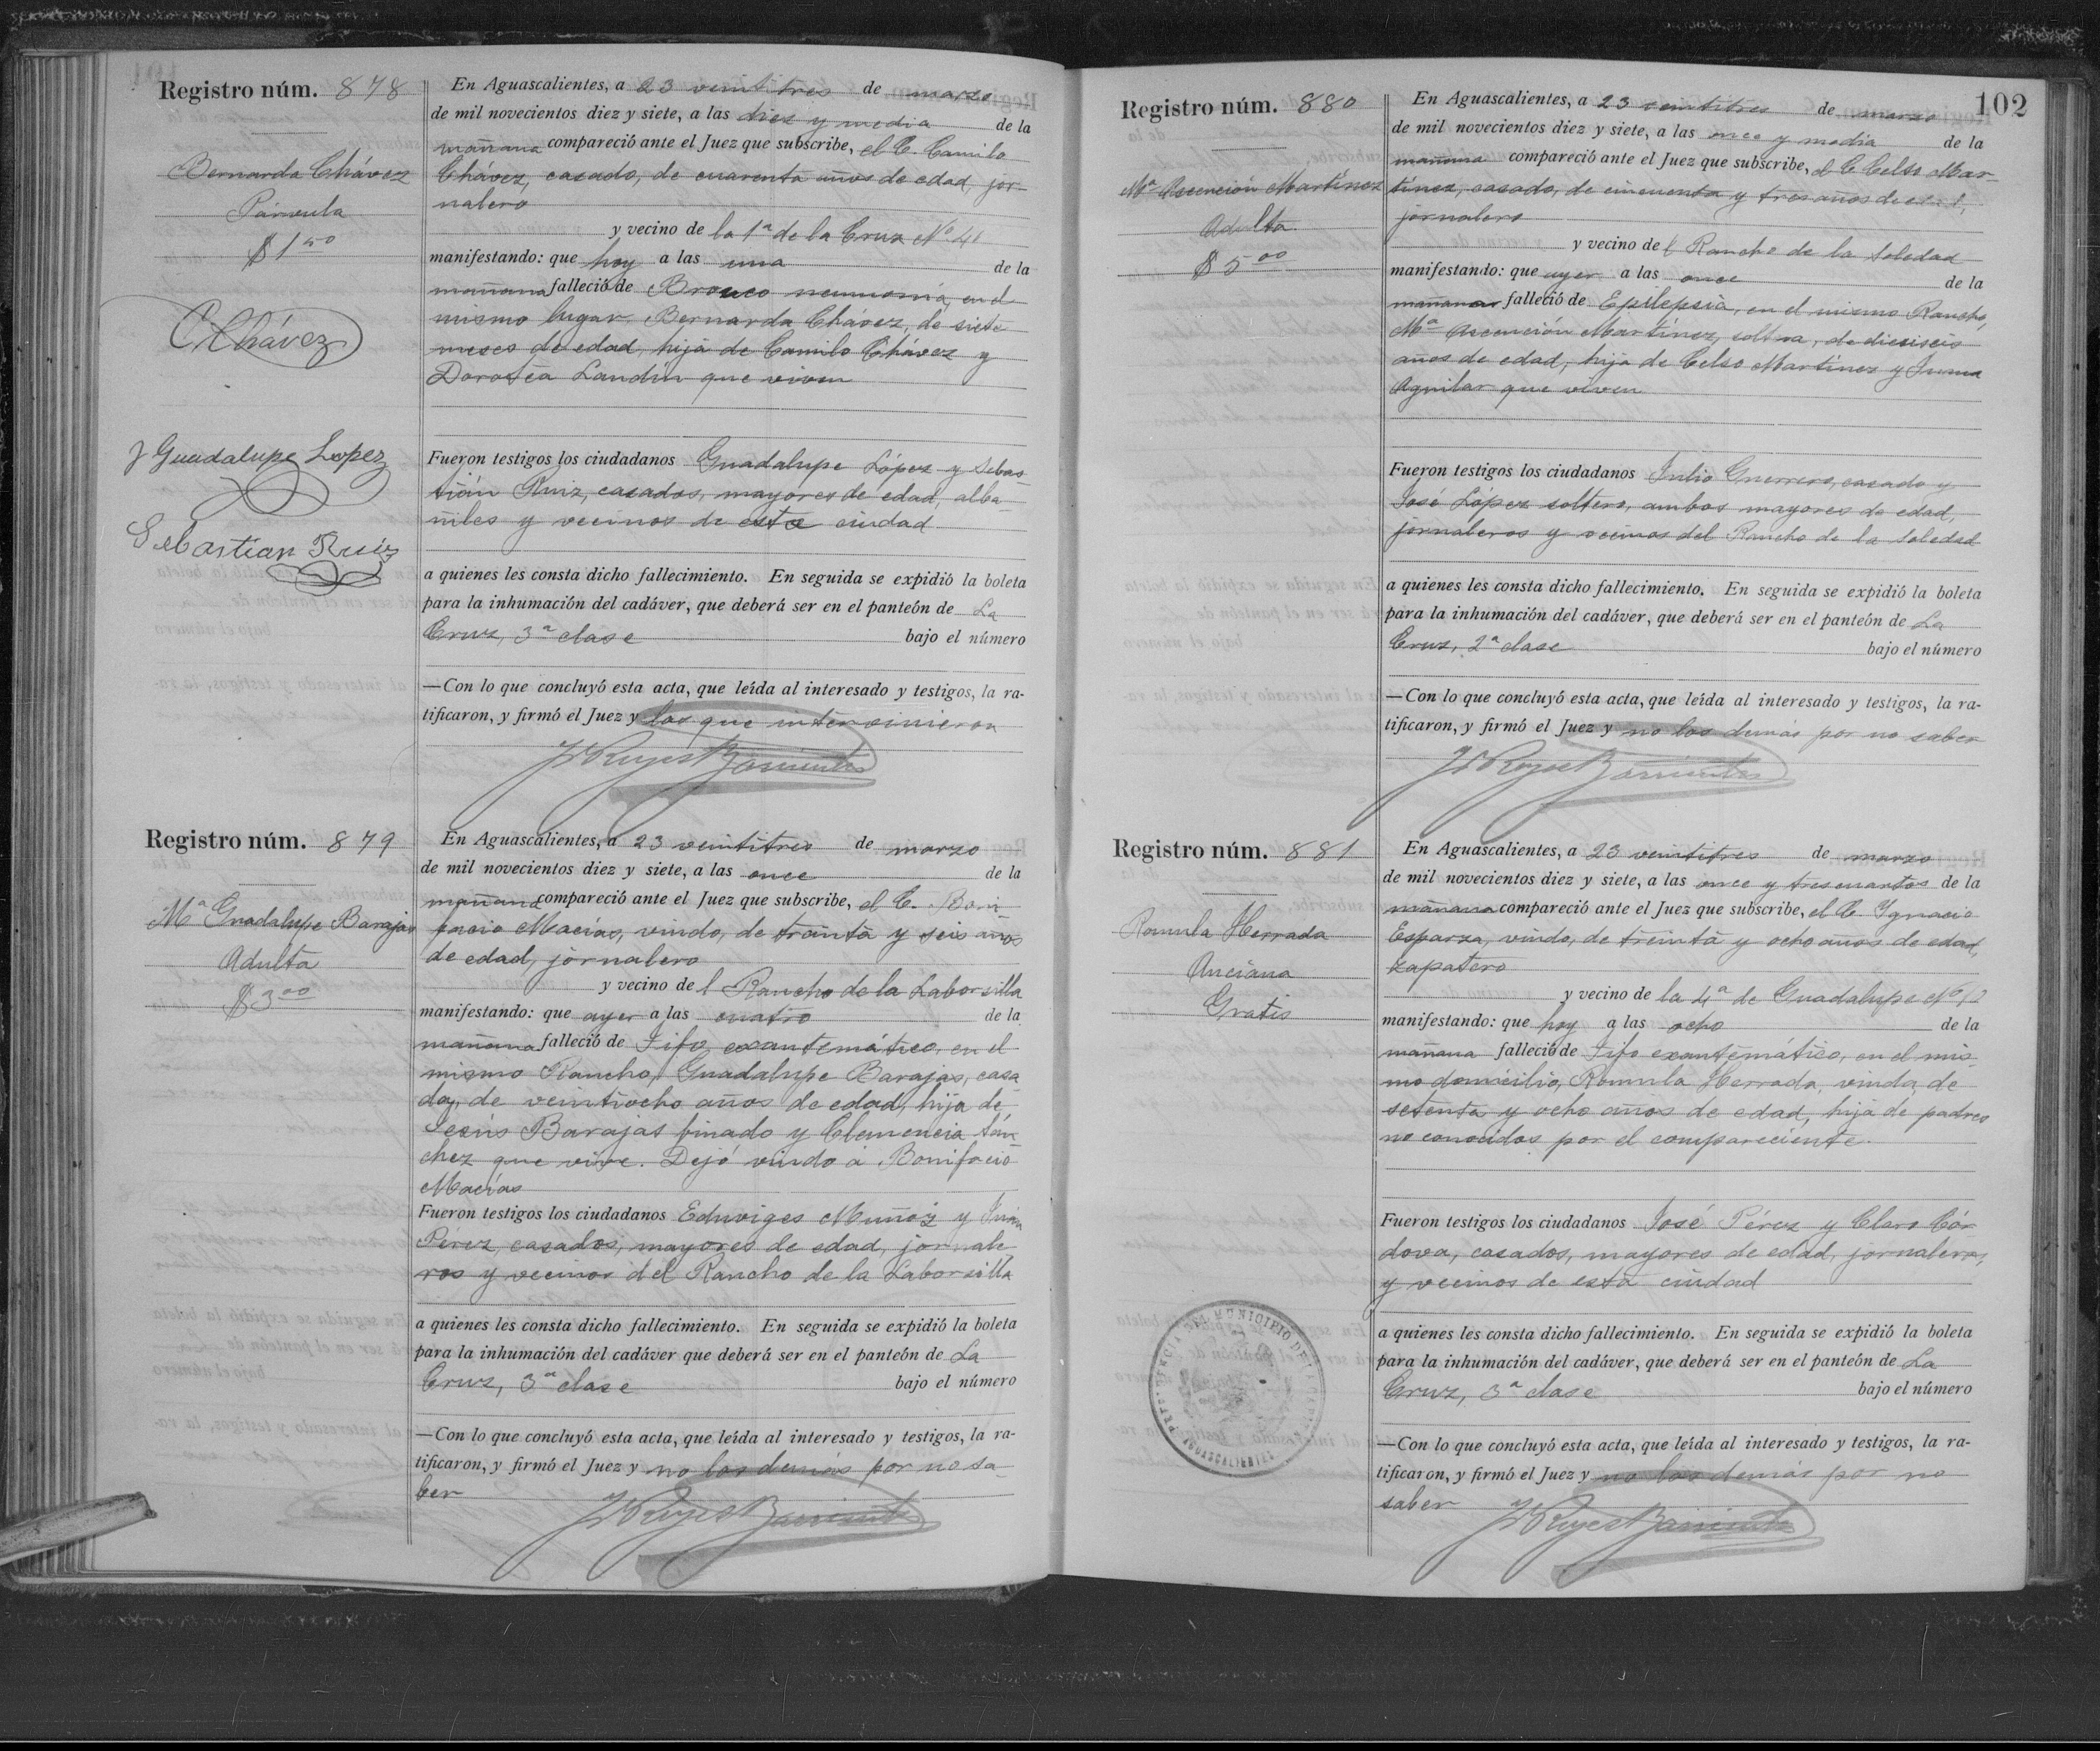 Registro núm. 878
Bernarda Chávez
Párvula
$1 50
C Chávez
J Guadalupe Lopez
Sebastian Ruiz
En Aguascalientes, a 23 veintitres de marzo
de mil novecientos diez y siete, a las diez y media de la
mañana compareció ante el Juez que subscribe, el C. Camilo
Chávez, casado, de cuarenta años de edad, jor-
nalero
y vecino de la 1ª de la Cruz Nº 41
manifestando: que hoy a las una de la
mañana falleció de Bronco neumonia, en el
mismo lugar. Bernarda Chávez, de siete
meses de edad, hija de Camilo Chávez y
Dorotea Landin que viven
Fueron testigos los ciudadanos Guadalupe López y Sebas
tián Ruiz, casados, mayores de edad, alba-
ñiles y vecinos de esta ciudad
a quienes les consta dicho fallecimiento. En seguida se expidió la boleta
para la inhumación del cadáver, que deberá ser en el panteón de La
Cruz, 3ª clase bajo el número
—Con lo que concluyó esta acta, que leída al interesado y testigos, la ra-
tificaron, y firmó el Juez y los que intervinieron
J Reyes Barrientos
Registro núm. 879
Mª Guadalupe Barajas
Adulta
$3 00
En Aguascalientes, a 23 veintitres de marzo
de mil novecientos diez y siete, a las once de la
mañana compareció ante el Juez que subscribe, el C. Boni
facio Macías, viudo, de treinta y seis años
de edad, jornalero
y vecino de l Rancho de la Laborcilla
manifestando: que ayer a las cuatro de la
mañana falleció de Tifo exantemático, en el
mismo Rancho, Guadalupe Barajas, casa
da, de veintiocho años de edad, hija de
Jesús Barajas finado y Clemencia Sán
chez que vive. Dejó viudo á Bonifacio
Macías
Fueron testigos los ciudadanos Eduviges Muñoz y
Pérez, casados, mayores de edad, jornale
ros y vecinos del Rancho de la Laborcilla
a quienes les consta dicho fallecimiento. En seguida se expidió la boleta
para la inhumación del cadáver que deberá ser en el panteón de La
Cruz, 3ª clase bajo el número
—Con lo que concluyó esta acta, que leída al interesado y testigos, la ra-
tificaron, y firmó el Juez y no los demás por no sa-
ber
J Reyes Barrientos
102
Registro núm. 880
Mª Ascención Martínez
Adulta
$5 00
En Aguascalientes, a 23 veintitres de marzo
de mil novecientos diez y siete, a las once y media de la
mañana compareció ante el Juez que subscribe, el C Celso Mar-
tínez, casado, de cincuenta y tres años de edad,
jornalero
y vecino de l Rancho de la Soledad
manifestando: que ayer a las once de la
mañana falleció de Epilepsia, en el mismo Rancho,
Mª Ascención Martínez, soltera, de dieciseis
años de edad, hija de Celso Martínez y
Aguilar que viven
Fueron testigos los ciudadanos Julio Guerrero, casado y
José López soltero, ambos mayores de edad,
jornaleros y vecinos del Rancho de la Soledad
a quienes les consta dicho fallecimiento. En seguida se expidió la boleta
para la inhumación del cadáver, que deberá ser en el panteón de La
Cruz, 2ª clase bajo el número
—Con lo que concluyó esta acta, que leída al interesado y testigos, la ra-
tificaron, y firmó el Juez y no los demás por no saber
J Reyes Barrientos
Registro núm. 881
Romula Herrada
Anciana
Gratis
En Aguascalientes, a 23 veintitres de marzo
de mil novecientos diez y siete, a las once y tres cuartos de la
mañana compareció ante el Juez que subscribe, el C. Ignacio
Esparza, viudo, de treinta y ocho años de edad,
zapatero
y vecino de la 4ª de Guadalupe Nº 12
manifestando: que hoy a las ocho de la
mañana falleció de Tifo exantemático, en el mis
mo domicilio, Romula Herrada, viuda, de
setenta y ocho años de edad, hija de padres
no conocidos por el compareciente.
Fueron testigos los ciudadanos José Pérez y Claro Cór
dova, casados, mayores de edad, jornaleros,
y vecinos de esta ciudad
a quienes les consta dicho fallecimiento. En seguida se expidió la boleta
para la inhumación del cadáver, que deberá ser en el panteón de La
Cruz, 3ª clase bajo el número
—Con lo que concluyó esta acta, que leída al interesado y testigos, la ra-
tificaron, y firmó el Juez y no los demás por no
saber
J Reyes Barrientos
MUNICIPIO DE
AGUASCALIENTES